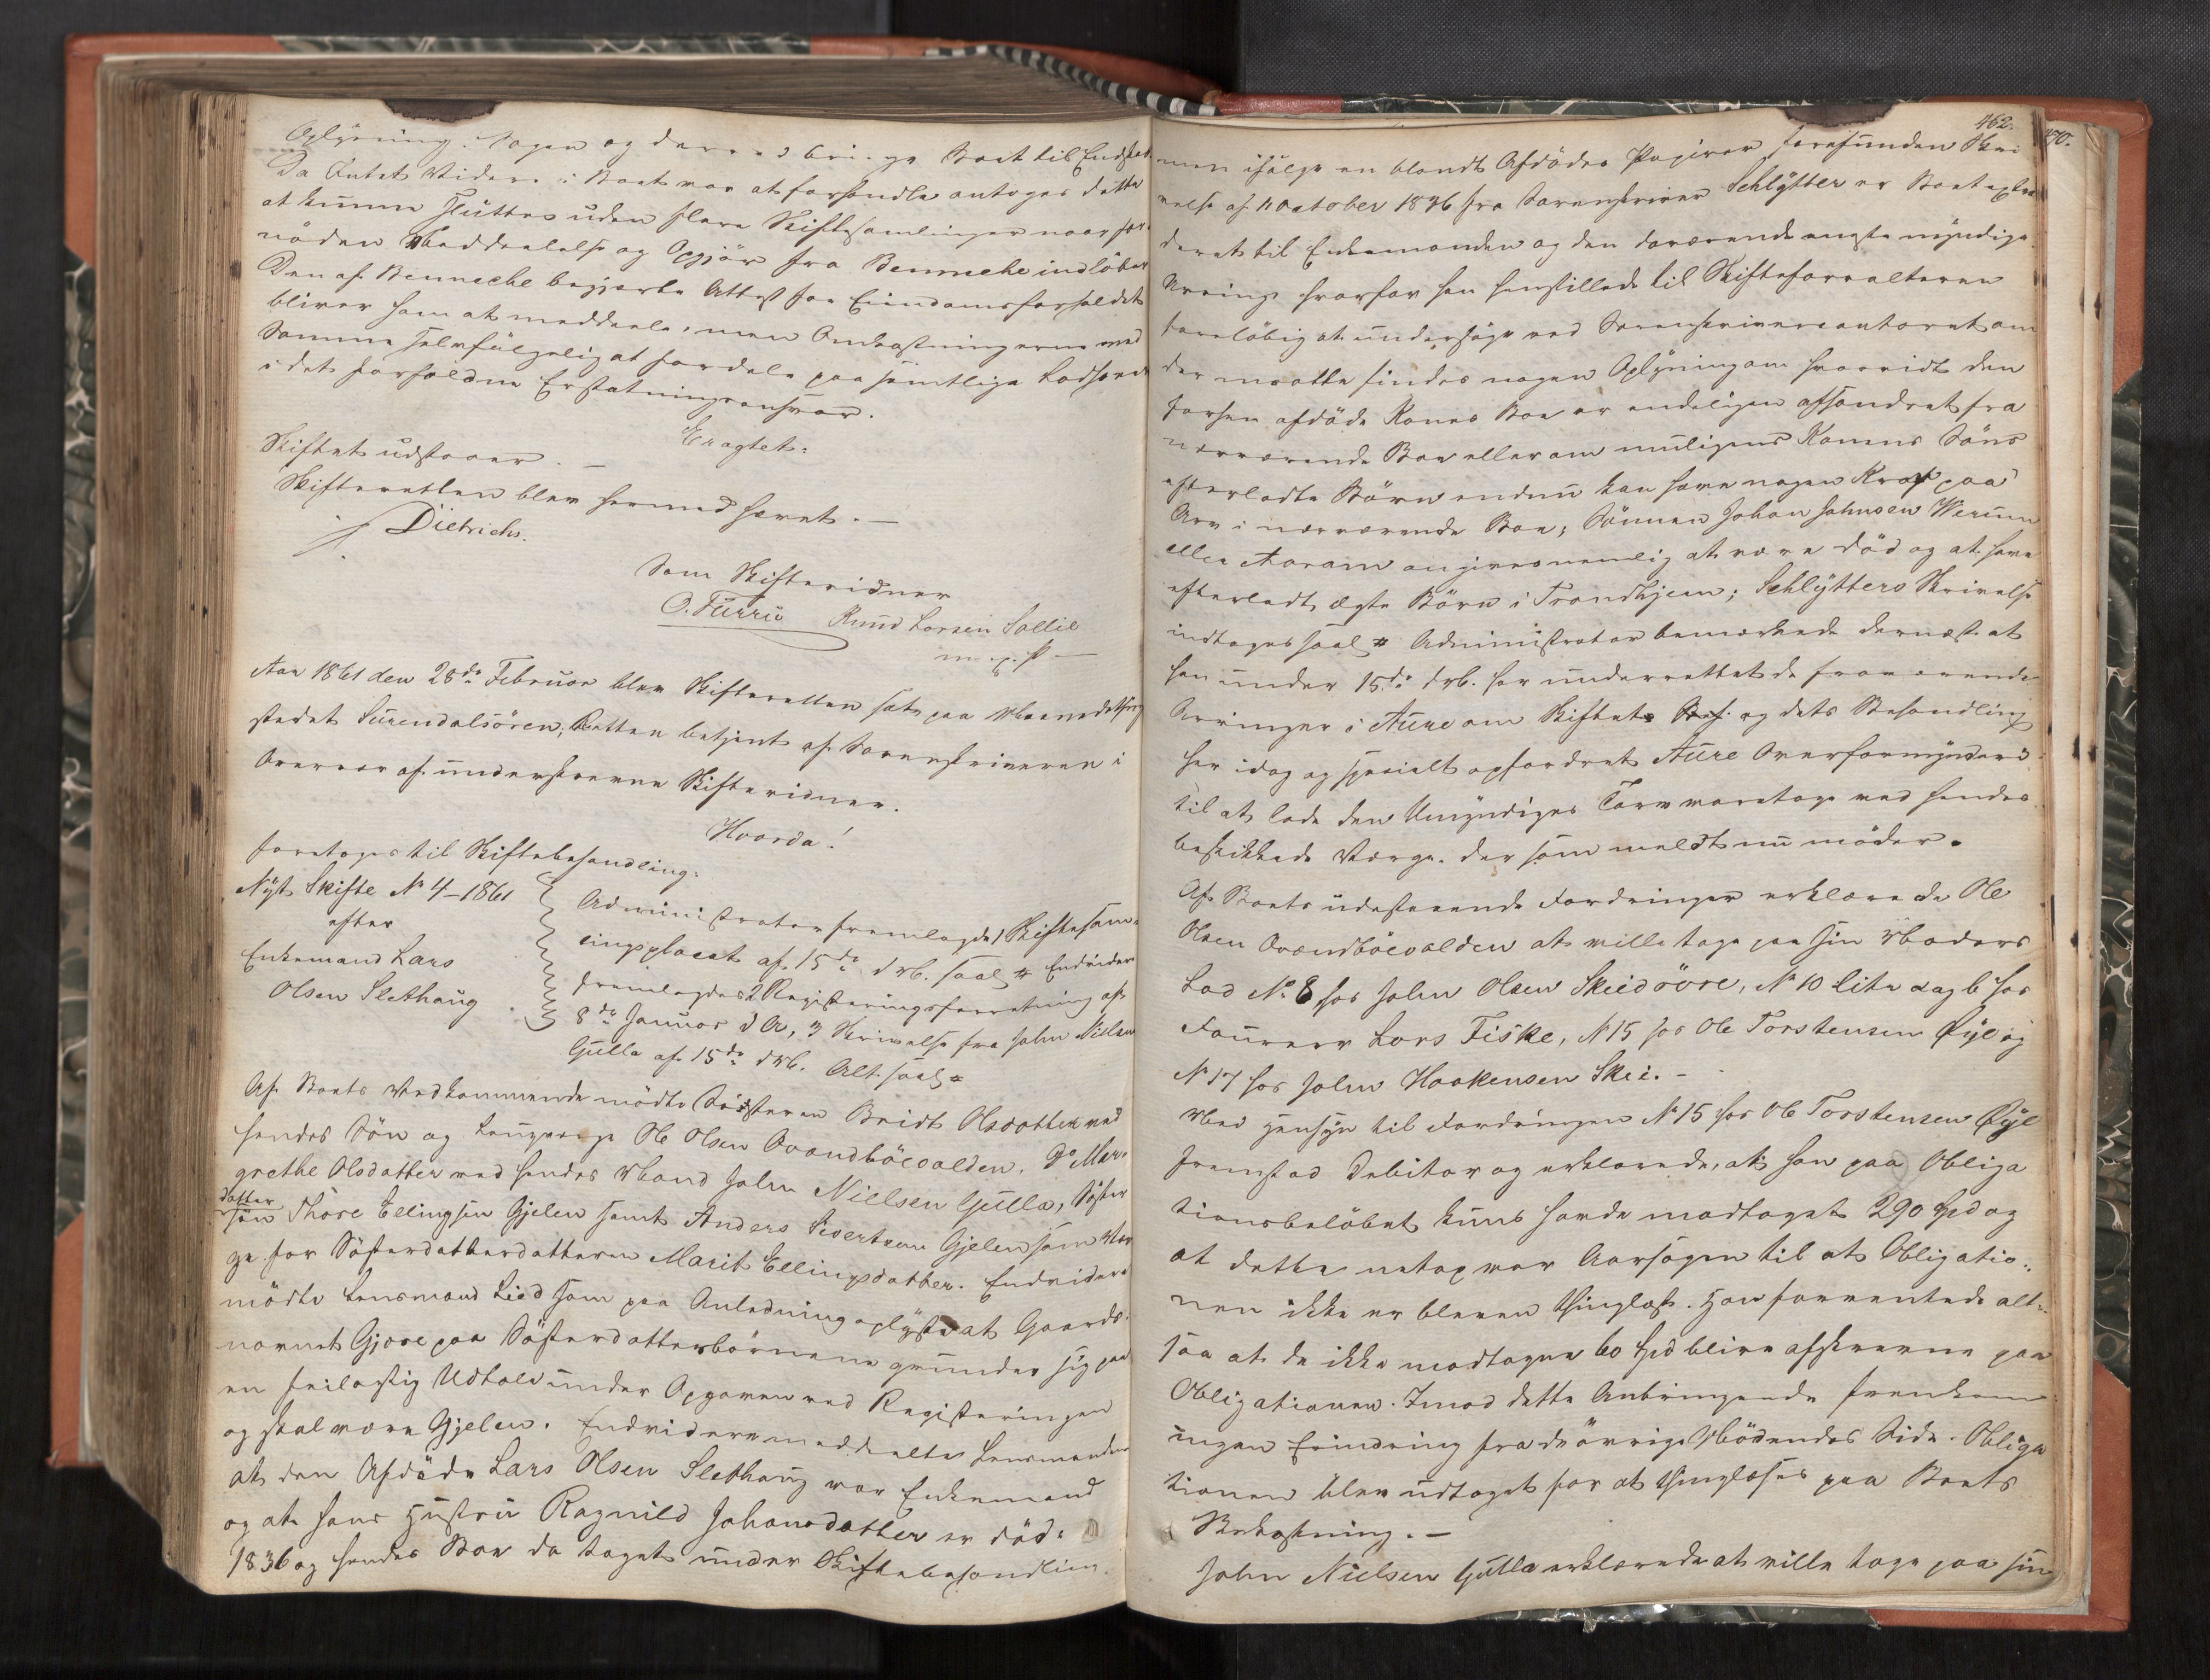 Oplysning i Sagen og derved bringe Boet til Endskab.
Da Intet Videre i Boet var at forhandle antoges dette
at kunne sluttes uden flere Skiftesamlinger naar for-
nöden Meddelelse og Opgjör fra Bennecke indlöber
Den af Bennecke begjærte Attest for Eiendomsforholdet
bliver ham at meddele, men Omkostningerne ved
Samme selvfölgelig at fordele paa samtlige Lodhavere
i det forholdne Erstatningsansvar.
Eragtet:
Skiftet udstaaer. –
Skifteretten blev hermed hævet. –
Dietrichs.
Som Skiftevidner
O. Furru Knud Larsen Sollie
m. p. P –
Aar 1861 den 28de Februar blev Skifteretten sat paa Maanedsthing-
stedet Surendalsören; Retten betjent af Sorenskriveren i
Overvær af underskrevne Skiftevidner.
Hvorda!
foretoges til Skiftebehandling:
Nyt Skifte No 4 – 1861
efter
Enkemand Lars
Olsen Slethaug
Administrator fremlagde 1 Skiftesam-
lingsplacat af 15de dMd. saal # Endvidere
fremlagdes 2 Registeringsforretning af
8de Januar d A, 3 Skrivelse fra John Nielsen
Gulla af 15de dMd. Alt saal #
Af Boets Vedkommende mödte Söstren Bridt Olsdatter ved
hendes Sön og Laugværge Ole Olsen Ovandböevalden, Do Mar-
grethe Olsdatter ved hendes Mand John Nielsen Gulla, Söster
datter
sön Thore Ellingsen Gjelen samt Anders Sivertsen Gjelen som Vær
ge for Sösterdatterdatteren Marit Ellingsdatter. Endvidere
mödte Lensmand Lied som paa Anledning oplyste at Gaards-
navnet Gjore paa Sösterdatterbörnene grunder sig paa
en feilagtig Udtale under Opgaven ved Registeringen
og skal være Gjelen. Endvidere meddeelte Lensmanden
at den Afdöde Lars Olsen Slethaug var Enkemand
og at hans Hustru Ragnild Johansdatter er död i
1836 og hendes Boe da taget under Skiftebehandling
462.
470.
men ifölge en blandt Afdödes Papirer forefunden Skri
velse af 11 October 1836 fra Sorenskriver Schlytter er Boet extra
deret til Enkemanden og den daværende ægte myndige
Arving hvorfor han henstillede til Skifteforvalteren
forelöbig at undersöge ved Sorenskrivercontoret om
der maatte findes nogen Oplysning om hvorvidt den
forhen afdöde Kones Boe er endeligen afsondret fra
nærværende Boe eller om muligens Konens Söns
efterladte Börn endnu kan have nogen Krav paa
Arv i nærværende Boe; Sönnen Johan Johnsen Wirum
eller Aaram angives nemlig at være död og at have
efterladt ægte Börn i Trondhjem; Schlytters Skrivelse
indtages saal # Administrator bemærkede dernæst at
han under 15de dMd. har underrettet de fraværende
Arvinger i Aure om Skiftet og dets Behandling
her idag og specielt opfordret Aure Overformynderi
til at lade den Umyndiges Tarv varetage ved hendes
beskikkede Værge, der som meldt nu möder.
Af Boets udestaaende Fordringer erklærede Ole
Olsen Ovandböevalden at ville tage paa sin Moders
Lod No 8 hos John Olsen Skeidövre, No 10 litr a og b hos
Fourer Lars Fiske, No 15 hos Ole Torstensen Øye og
No 17 hos John Haakensen Skei. –
Med Hensyn til Fordringen No 15 hos Ole Torstensen Øye
fremstod Debitor og erklærede, at han paa Obliga
tionsbelöbet kuns havde modtaget 290 Spd og
at dette netop var Aarsagen til at Obligatio-
nen ikke er bleven thinglæst. Han forventede alt-
saa at de ikke modtagne 60 Spd blive afskrevne paa
Obligationen. Imod dette Anbringende fremkom
ingen Erindring fra de övrige Mödendes Side. Obliga
tionen blev udtaget for at thinglæses paa Boets
Bekostning. –
John Nielsen Gulla erklærede at ville tage paa sin